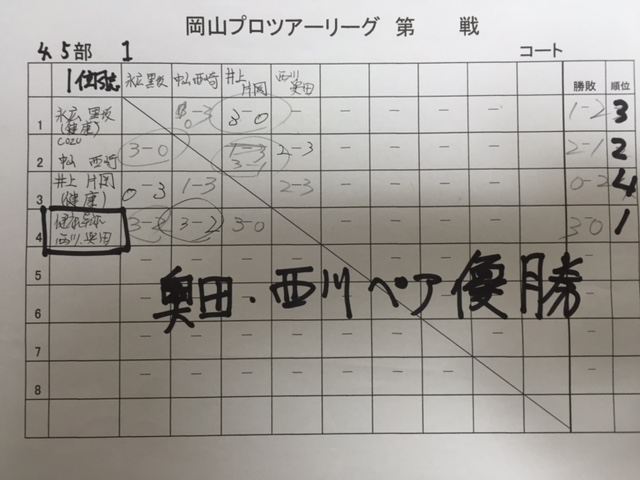 岡山プロツアーリーグ 第 戦
4.5部 1 コート
1位 永広 中山 西崎 井上 片岡 西川 奥田 勝敗 順位
1 永広 (健康) 0-3 3-0 - - - - - - 1-2 3
2 中山 西崎 3-0 3-1 2-3 - - - - - 2-1 2
3 井上 片岡 (健康) 0-3 1-3 2-3 - - - - - 0-2 4
4 西川、奥田 3-2 3-2 3-0 - - - - - 3-0 1
5 - - - - - - - -
奥田・西川ペア優勝
6 - - - - - - - -
7 - - - - - - - - -
8 - - - - - - - -